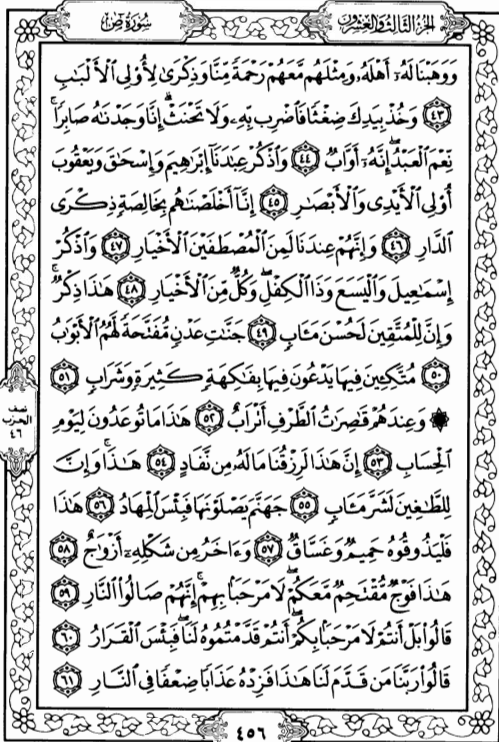 سُورَةُ صٓ
الجُزْءُ الثَّالِثُ وَالعِشْرُونَ
وَوَهَبْنَا لَهُۥٓ أَهْلَهُۥ وَمِثْلَهُم مَّعَهُمْ رَحْمَةً مِّنَّا وَذِكْرَىٰ لِأُوْلِي ٱلْأَلْبَٰبِ
٤٣ وَخُذْ بِيَدِكَ ضِغْثًا فَٱضْرِب بِّهِۦ وَلَا تَحْنَثْ ۗ إِنَّا وَجَدْنَٰهُ صَابِرًا ۚ
نِّعْمَ ٱلْعَبْدُ ۖ إِنَّهُۥٓ أَوَّابٌ ٤٤ وَٱذْكُرْ عِبَٰدَنَآ إِبْرَٰهِيمَ وَإِسْحَٰقَ وَيَعْقُوبَ
أُوْلِي ٱلْأَيْدِي وَٱلْأَبْصَٰرِ ٤٥ إِنَّآ أَخْلَصْنَٰهُم بِخَالِصَةٍ ذِكْرَى
ٱلدَّارِ ٤٦ وَإِنَّهُمْ عِندَنَا لَمِنَ ٱلْمُصْطَفَيْنَ ٱلْأَخْيَارِ ٤٧ وَٱذْكُرْ
إِسْمَٰعِيلَ وَٱلْيَسَعَ وَذَا ٱلْكِفْلِ ۖ وَكُلٌّ مِّنَ ٱلْأَخْيَارِ ٤٨ هَٰذَا ذِكْرٌ ۚ
وَإِنَّ لِلْمُتَّقِينَ لَحُسْنَ مَـَٔابٍ ٤٩ جَنَّٰتِ عَدْنٍ مُّفَتَّحَةً لَّهُمُ ٱلْأَبْوَٰبُ
٥٠ مُتَّكِـِٔينَ فِيهَا يَدْعُونَ فِيهَا بِفَٰكِهَةٍ كَثِيرَةٍ وَشَرَابٍ ٥١
۞ وَعِندَهُمْ قَٰصِرَٰتُ ٱلطَّرْفِ أَتْرَابٌ ٥٢ هَٰذَا مَا تُوعَدُونَ لِيَوْمِ
ٱلْحِسَابِ ٥٣ إِنَّ هَٰذَا لَرِزْقُنَا مَا لَهُۥ مِن نَّفَادٍ ٥٤ هَٰذَا ۚ وَإِنَّ
لِلطَّٰغِينَ لَشَرَّ مَـَٔابٍ ٥٥ جَهَنَّمَ يَصْلَوْنَهَا فَبِئْسَ ٱلْمِهَادُ ٥٦ هَٰذَا
فَلْيَذُوقُوهُ حَمِيمٌ وَغَسَّاقٌ ٥٧ وَءَاخَرُ مِن شَكْلِهِۦٓ أَزْوَٰجٌ ٥٨
هَٰذَا فَوْجٌ مُّقْتَحِمٌ مَّعَكُمْ ۖ لَا مَرْحَبًۢا بِهِمْ ۚ إِنَّهُمْ صَالُوا۟ ٱلنَّارِ ٥٩
قَالُوا۟ بَلْ أَنتُمْ لَا مَرْحَبًۢا بِكُمْ ۖ أَنتُمْ قَدَّمْتُمُوهُ لَنَا ۖ فَبِئْسَ ٱلْقَرَارُ ٦٠
قَالُوا۟ رَبَّنَا مَن قَدَّمَ لَنَا هَٰذَا فَزِدْهُ عَذَابًا ضِعْفًا فِي ٱلنَّارِ ٦١
نصف
الحزب
٤٦
٤٥٦